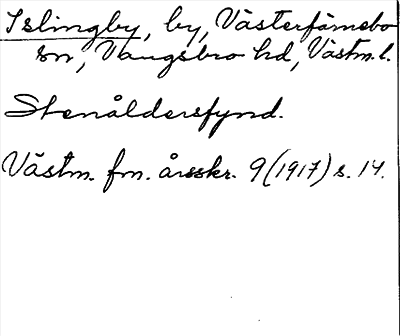 Islingby, by, Västerfärnebo
sn, Vangsbro hd, Västm. l.
Stenåldersfynd.
Västm. fm. årsskr. 9 (1917) s. 14.